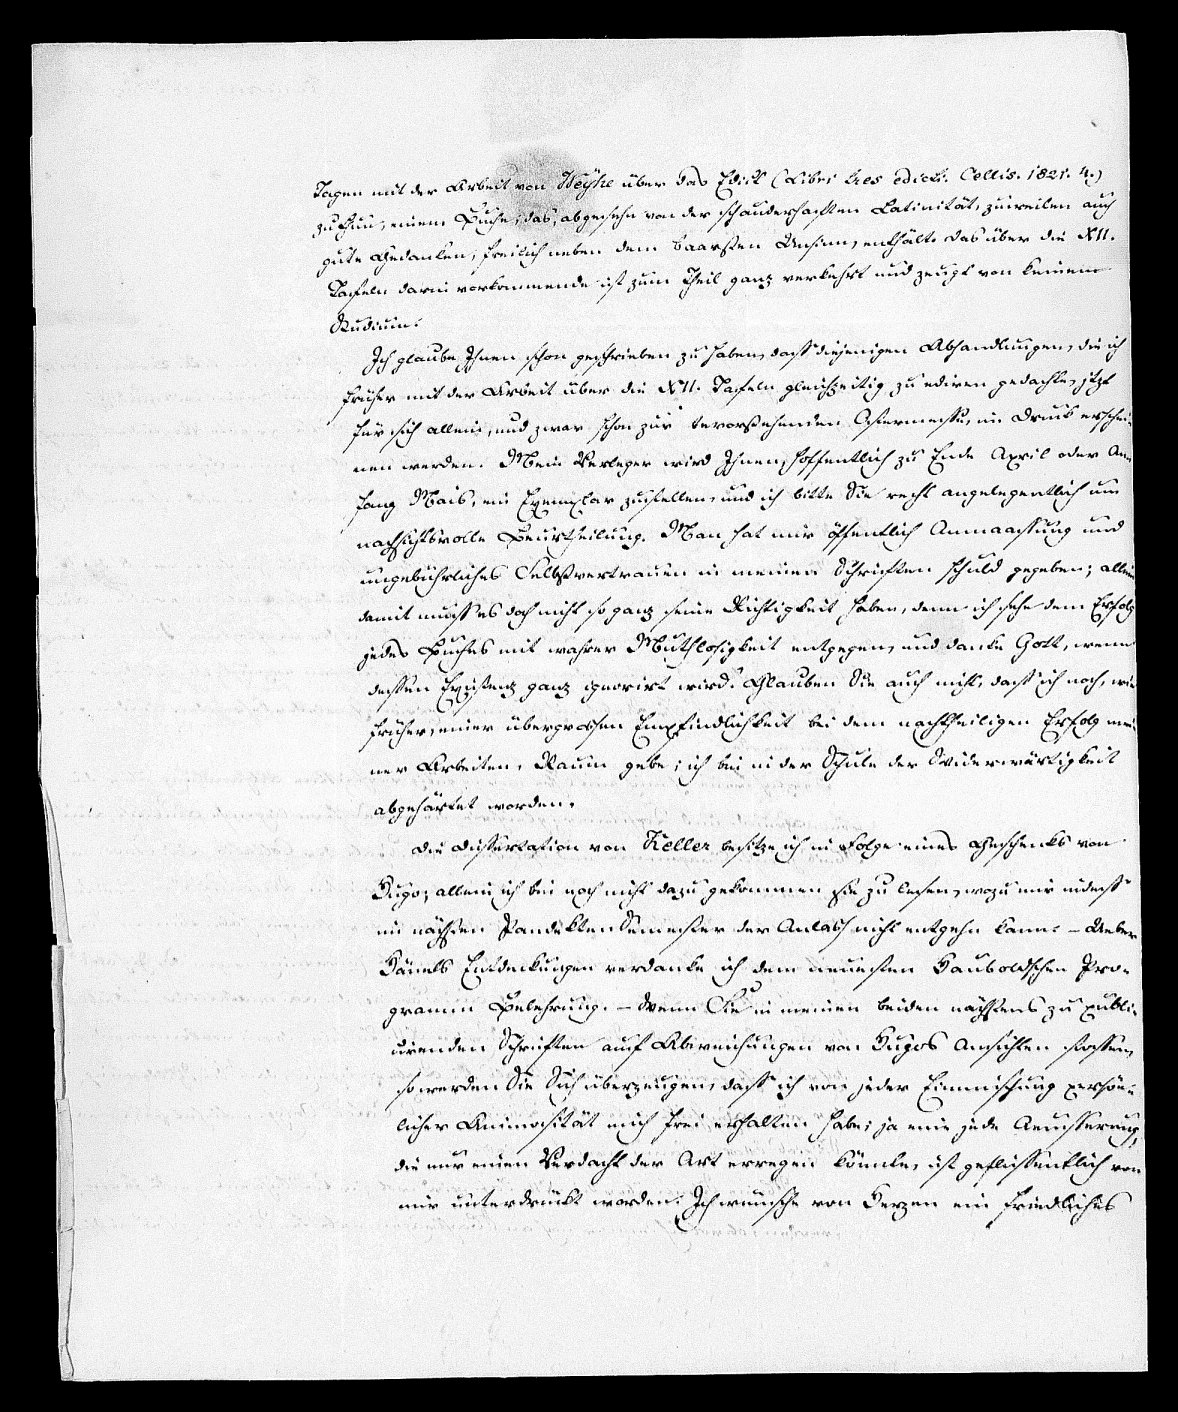 Tagen mit der Arbeit von Weyhe über das Edict (Libri tres edicti. Cellis. 1821. 4.)
zu thun, einem Buche, das, abgesehn von der schauderhaften Latinität, zuweilen auch
gute Gedanken, freilich neben dem baarsten Unsinn, enthält. Das über die XII.
Tafeln darin vorkommende ist zum Theil ganz verkehrt und zeugt von keinem
Studium.
Ich glaube Ihnen schon geschrieben zu haben, dass diejenigen Abhandlungen, die ich
früher mit der Arbeit über die XII. Tafeln gleichzeitig zu ediren gedachte, jetzt
für sich allein, und zwar schon zur bevorstehenden Ostermesse, im Druck erschei-
nen werden. Mein Verleger wird Ihnen, hoffentlich zu Ende April oder An-
fang Mais, ein Exemplar zustellen, und ich bitte Sie recht angelegentlich um
nachsichtsvolle Beurtheilung. Man hat mir öffentlich Anmaassung und
ungebührliches Selbstvertrauen in meinen Schriften schuld gegeben; allein
damit muss es doch nicht so ganz seine Richtigkeit haben, denn ich sehe dem Erfolg
jedes Buches mit wahrer Muthlosigkeit entgegen, und danke Gott, wenn
dessen Existenz ganz ignorirt wird. Glauben Sie auch nicht, dass ich noch, wie
früher, einer übergrossen Empfindlichkeit bei dem nachtheiligen Erfolg mei-
ner Arbeiten, Raum gebe; ich bin in der Schule der Widerwärtigkeit
abgehärtet worden.
Die Dissertation von Keller besitze ich in Folge eines Geschenks von
Hugo; allein ich bin noch nicht dazu gekommen sie zu lesen, wozu mir indess
im nächsten Pandekten Semester der Anlass nicht entgehn kann. – Ueber
Hänels Entdeckungen verdanke ich dem neuesten Hauboldschen Pro-
gramm Belehrung. – Wenn Sie in meinen beiden nächstens zu publi-
cirenden Schriften auf Abweichungen von Hugos Ansichten stossen,
so werden Sie Sich überzeugen, dass ich von jeder Einmischung persön-
licher Animosität mich frei erhalten habe; ja eine jede Aeusserung,
die nur einen Verdacht der Art erregen könnte, ist geflissentlich von
mir unterdrückt worden. Ich wünsche von Herzen ein friedliches